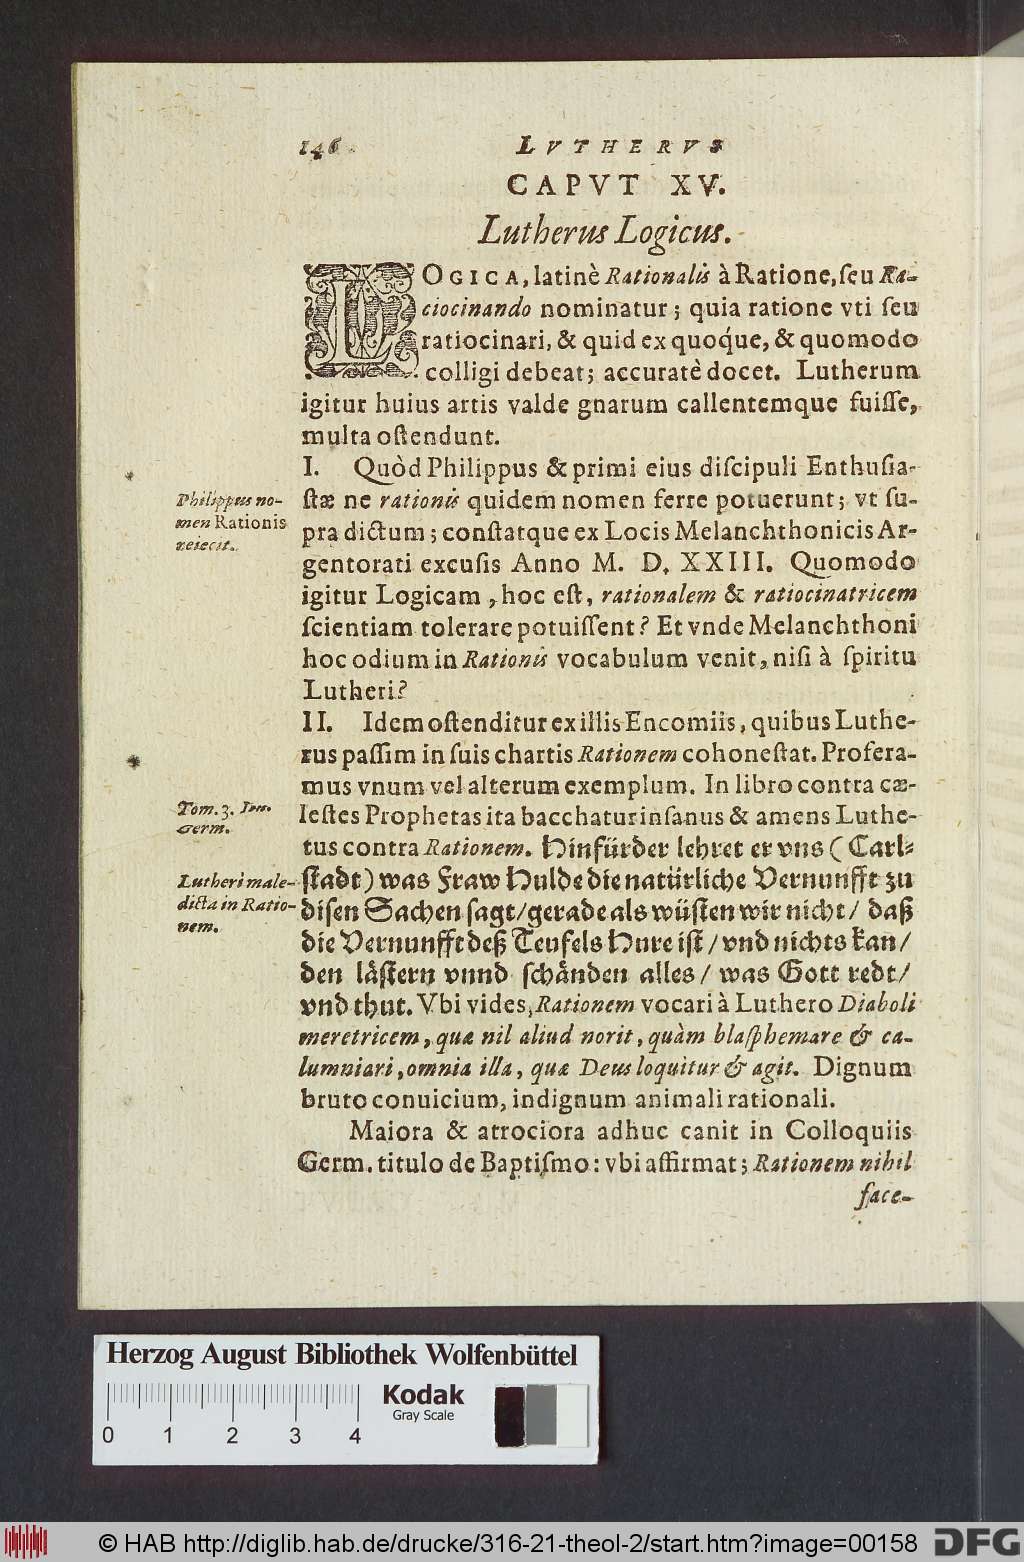 146 LVTHERVS
CAPVT XV.
Lutherus Logicus.
LOGICA, latinè Rationalis à Ratione, ſeu Ra-
ciocinando nominatur; quia ratione vti ſeu
ratiocinari, & quid ex quoq́ue, & quomodo
colligi debeat; accuratè docet. Lutherum
igitur huius artis valde gnarum callentemque fuiſſe,
multa oſtendunt.
I. Quòd Philippus & primi eius diſcipuli Enthuſia-
Philippus no-
men Rationis
reiecit.
ſtæ ne rationis quidem nomen ferre potuerunt; vt ſu-
pra dictum; conſtatque ex Locis Melanchthonicis Ar-
gentorati excuſis Anno M. D. XXIII. Quomodo
igitur Logicam, hoc eſt, rationalem & ratiocinatricem
ſcientiam tolerare potuiſſent? Et vnde Melanchthoni
hoc odium in Rationis vocabulum venit, niſi à ſpiritu
Lutheri?
II. Idem oſtenditur ex illis Encomiis, quibus Luthe-
rus paſſim in ſuis chartis Rationem cohoneſtat. Profera-
mus vnum vel alterum exemplum. In libro contra cæ-
Tom. 3. Ien.
Germ.
leſtes Prophetas ita bacchatur inſanus & amens Luthe-
tus contra Rationem. Hinfürder lehret er vns (Carl⸗
Lutheri male-
dicta in Ratio-
nem.
ſtadt) was Fraw Hulde die natürliche Vernunfft zu
diſen Sachen ſagt/ gerade als wüſten wir nicht/ daß
die Vernunfft deß Teufels Hure iſt/ vnd nichts kan/
den läſtern vnnd ſchänden alles/ was Gott redt/
vnd thut. Vbi vides, Rationem vocari à Luthero Diaboli
meretricem, quæ nil aliud norit, quàm blaſphemare & ca-
lumniari, omnia illa, quæ Deus loquitur & agit. Dignum
bruto conuicium, indignum animali rationali.
Maiora & atrociora adhuc canit in Colloquiis
Germ. titulo de Baptiſmo: vbi affirmat; Rationem nihil
face-
Herzog August Bibliothek Wolfenbüttel
Kodak
Gray Scale
0 1 2 3 4
© HAB http://diglib.hab.de/drucke/316-21-theol-2/start.htm?image=00158
DFG